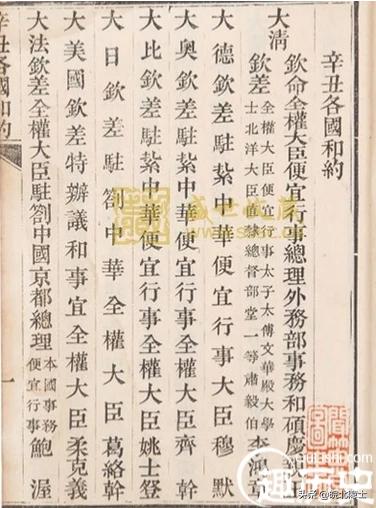 辛丑各國和約
大清
欽命全權大臣便宜行事總理外務部事務和碩慶親
欽差全權大臣便宜行事太子太傅文華殿大學士北洋大臣直隸總督部堂一等肅毅伯李鴻章
大德欽差駐紮中華便宜行事大臣穆默
大奧欽差駐紮中華便宜行事全權大臣齊幹
大比欽差駐紮中華便宜行事全權大臣姚士登
大日欽差駐劄中華全權大臣葛絡幹
大美國欽差特辦議和事宜全權大臣柔克義
大法欽差全權大臣駐劄中國京都總理本國事務便宜行事鮑渥
辛丑各國和約
一
頭条 @皖北隱士